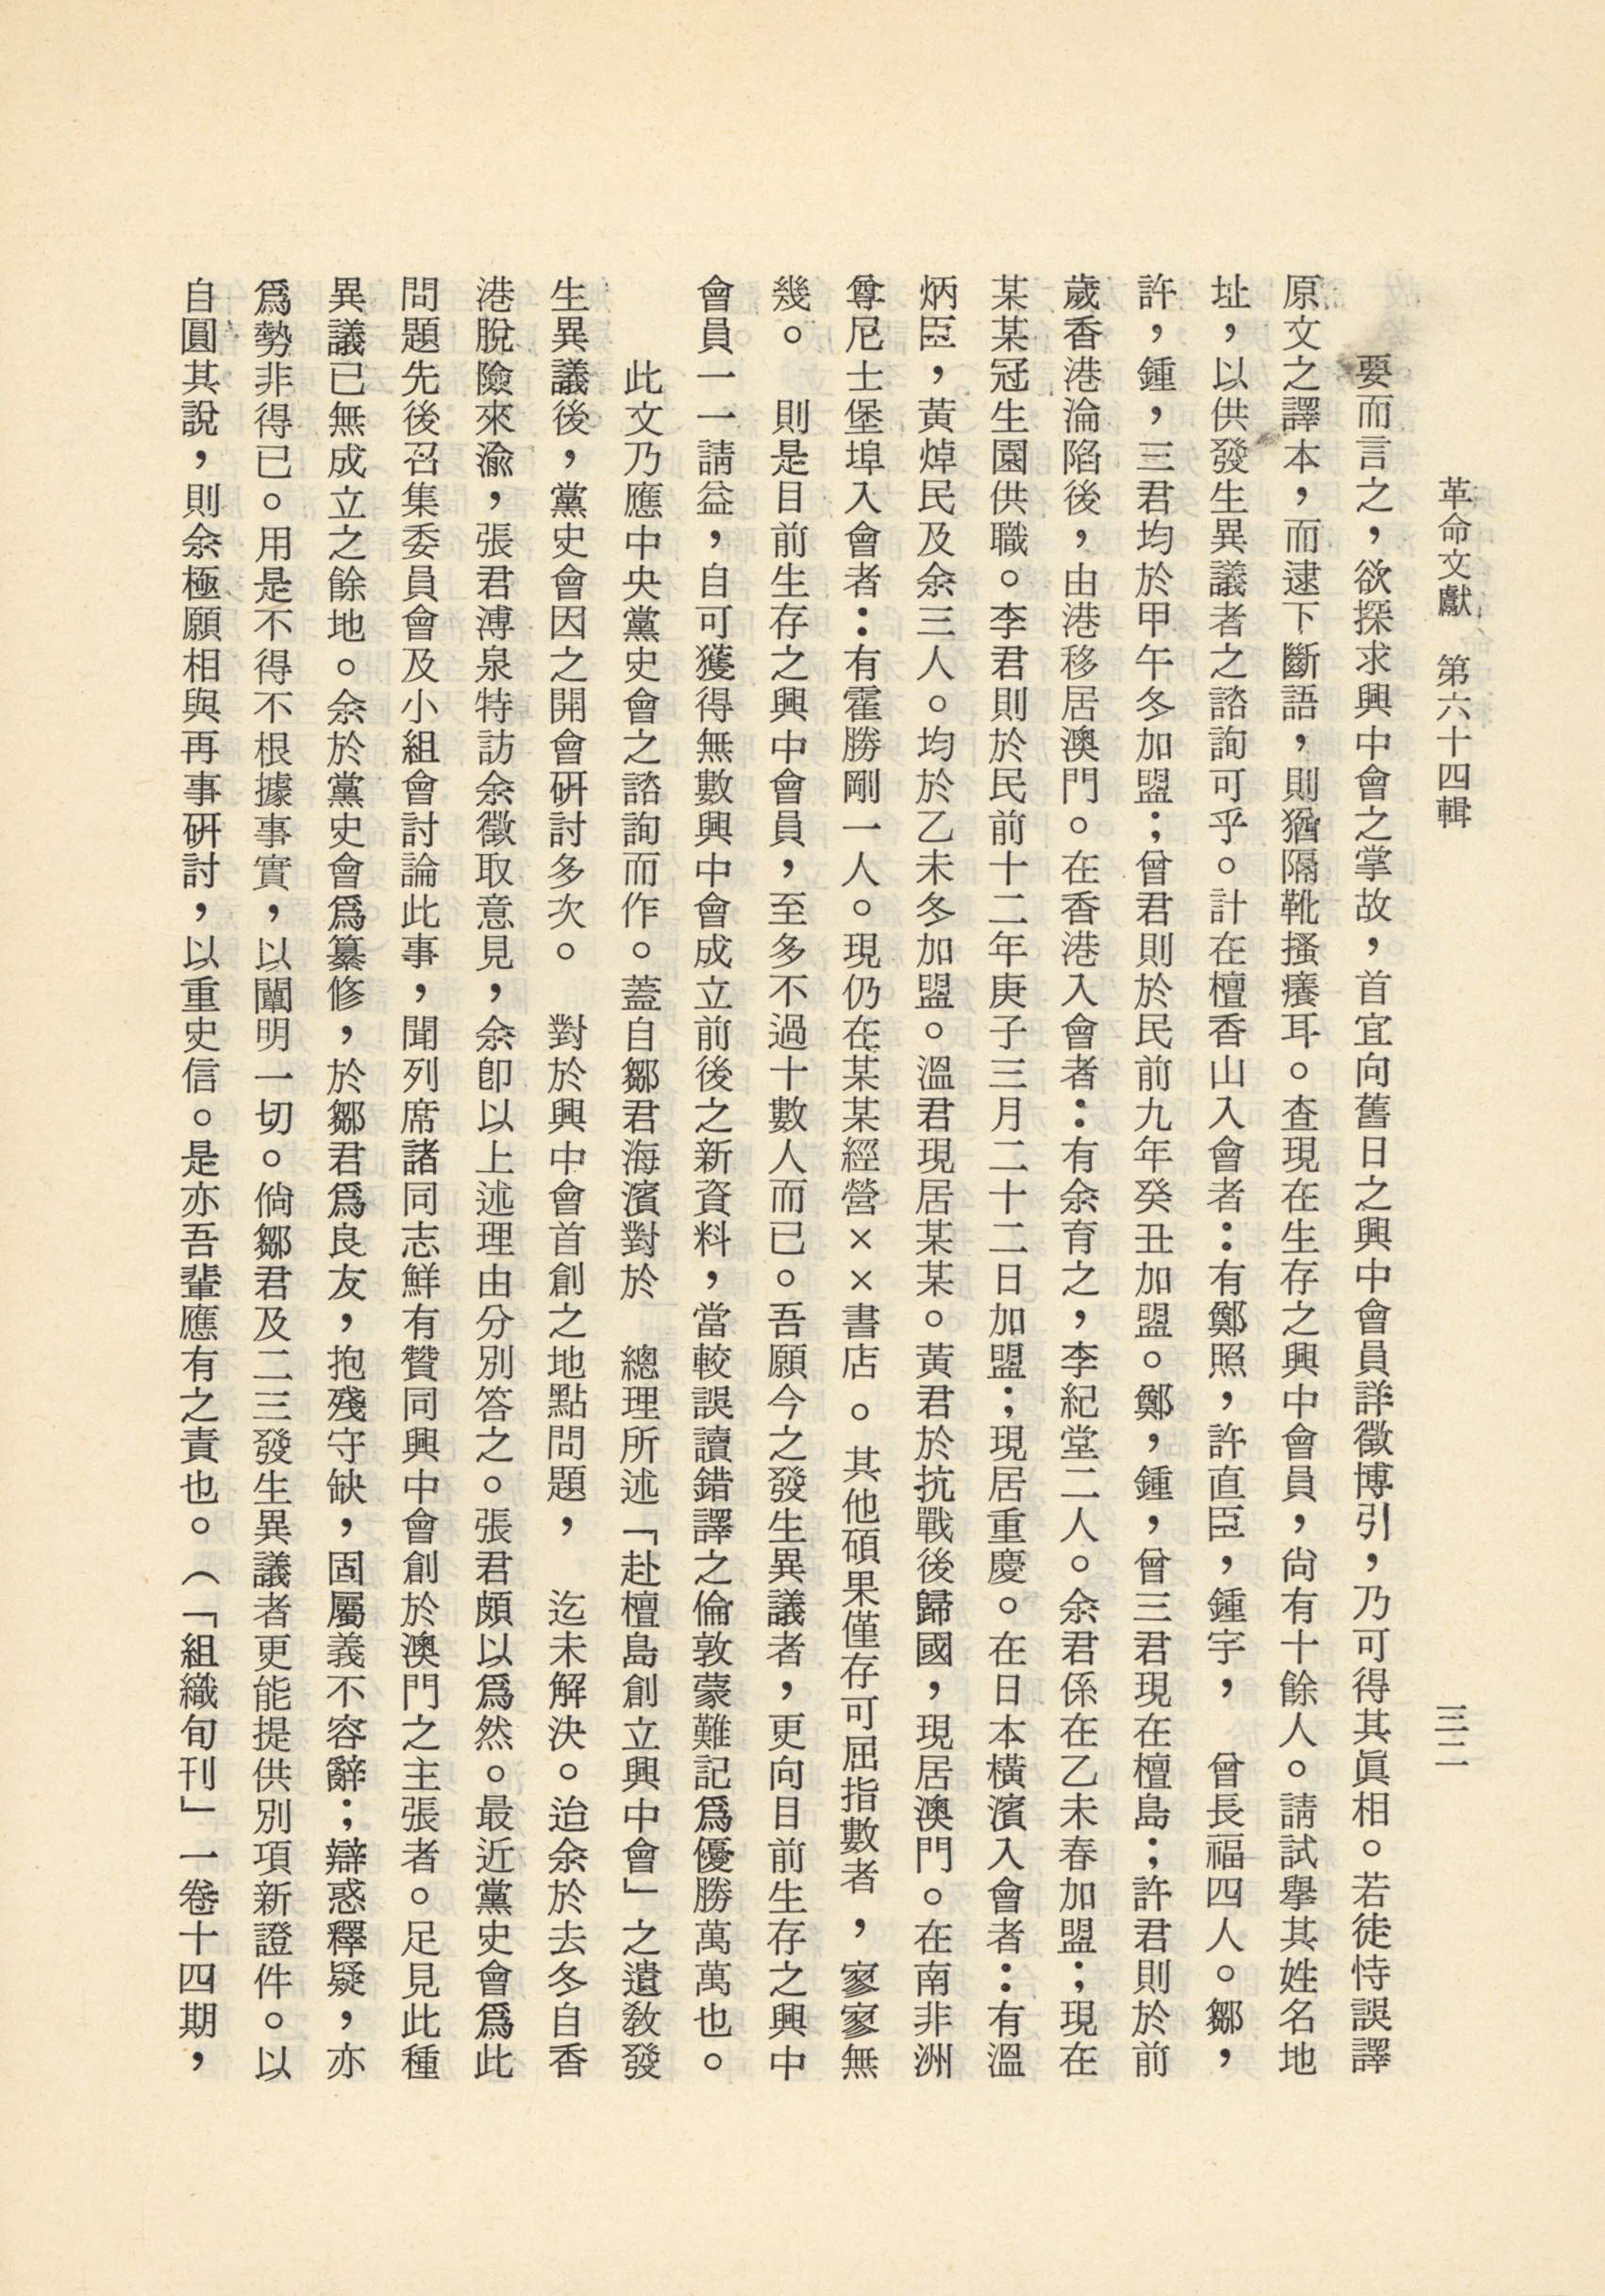 革命文獻　第六十四輯　三二
要而言之，欲探求興中會之掌故，首宜向舊日之興中會員詳徵博引，乃可得其眞相。若徒恃誤譯
原文之譯本，而逮下斷語，則猶隔靴搔癢耳。查現在生存之興中會員，尙有十餘人。請試擧其姓名地
址，以供發生異議者之諮詢可乎。計在檀香山入會者：有鄭照，許直臣，鍾宇，　曾長福四人。鄒，
許，鍾，三君均於甲午冬加盟；曾君則於民前九年癸丑加盟。鄭，鍾，曾三君現在檀島；許君則於前
歲香港淪陷後，由港移居澳門。在香港入會者：有余育之，李紀堂二人。余君係在乙未春加盟；現在
某某冠生園供職。李君則於民前十二年庚子三月二十二日加盟；現居重慶。在日本橫濱入會者：有溫
炳臣，黃焯民及余三人。均於乙未冬加盟。溫君現居某某。黃君於抗戰後歸國，現居澳門。在南非洲
尊尼士堡埠入會者：有霍勝剛一人。現仍在某某經營××書店。其他碩果僅存可屈指數者，寥寥無
幾。　則是目前生存之興中會員，至多不過十數人而已。吾願今之發生異議者，更向目前生存之興中
會員一一請益，自可獲得無數興中會成立前後之新資料，當較誤讀錯譯之倫敦蒙難記爲優勝萬萬也。
此文乃應中央黨史會之諮詢而作。蓋自鄒君海濱對於　總理所述「赴檀島創立興中會」之遺敎發
生異議後，黨史會因之開會硏討多次。　對於興中會首創之地點問題，　迄未解決。迨余於去冬自香
港脫險來渝，張君溥泉特訪余徵取意見，余卽以上述理由分別答之。張君頗以爲然。最近黨史會爲此
問題先後召集委員會及小組會討論此事，聞列席諸同志鮮有贊同興中會創於澳門之主張者。足見此種
異議已無成立之餘地。余於黨史會爲纂修，於鄒君爲良友，抱殘守缺，固屬義不容辭；辯惑釋疑，亦
爲勢非得已。用是不得不根據事實，以闡明一切。倘鄒君及二三發生異議者更能提供別項新證件。以
自圓其說，則余極願相與再事硏討，以重史信。是亦吾輩應有之責也。（「組織旬刊」一卷十四期，